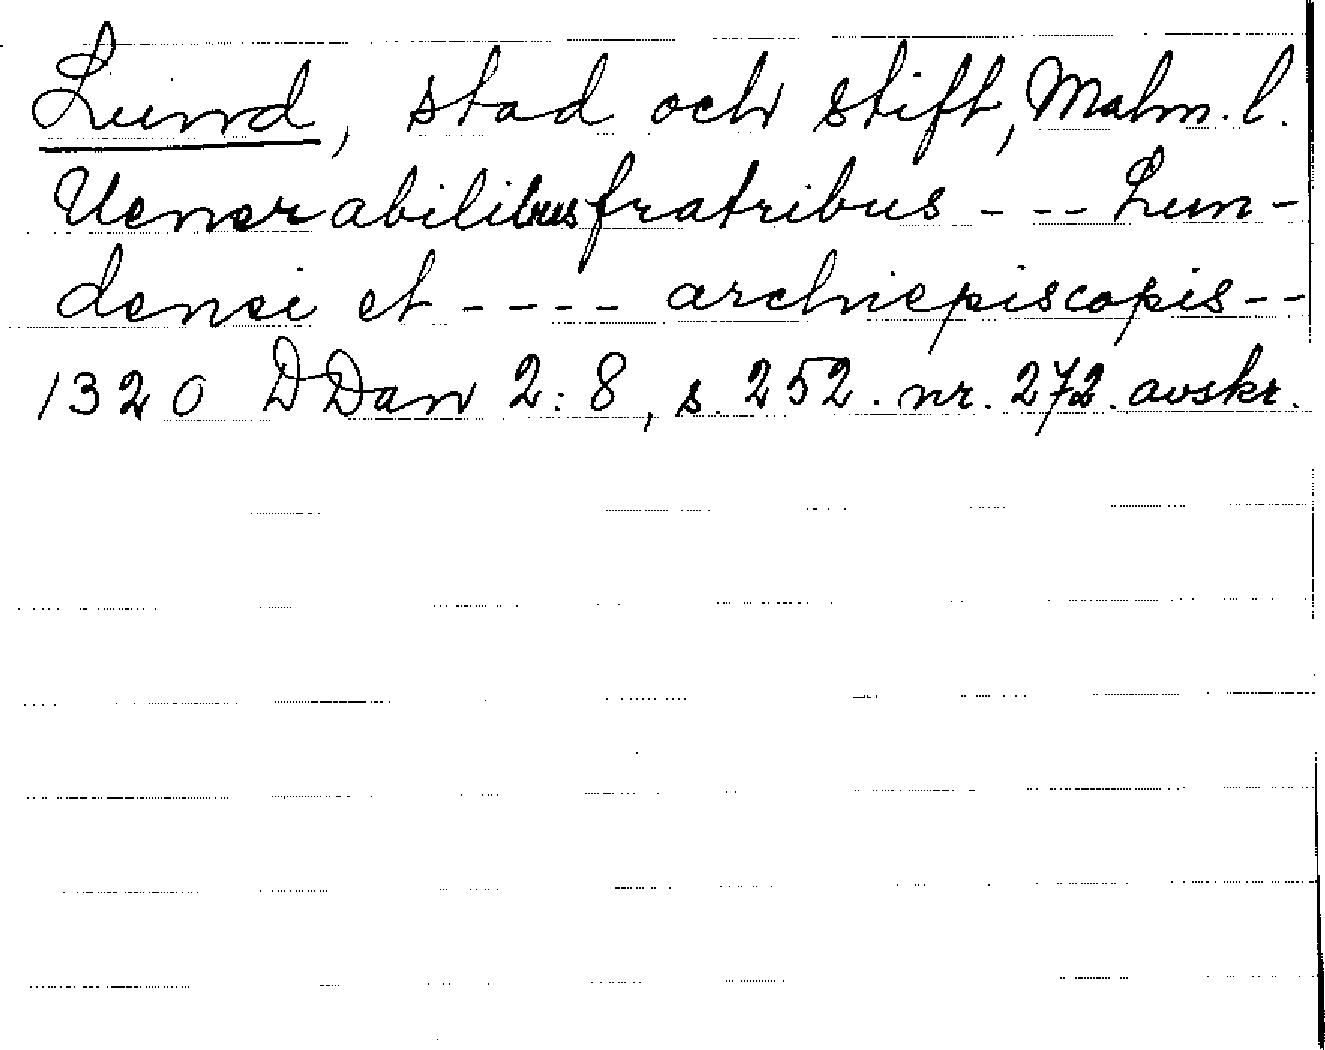 Lund, stad och stift, Malm. l.
Uenerabilibus fratribus - - - Lun-
densi et - - - - archiepiscopis - -
1320 DDan 2:8, s. 252. nr. 272. avskr.